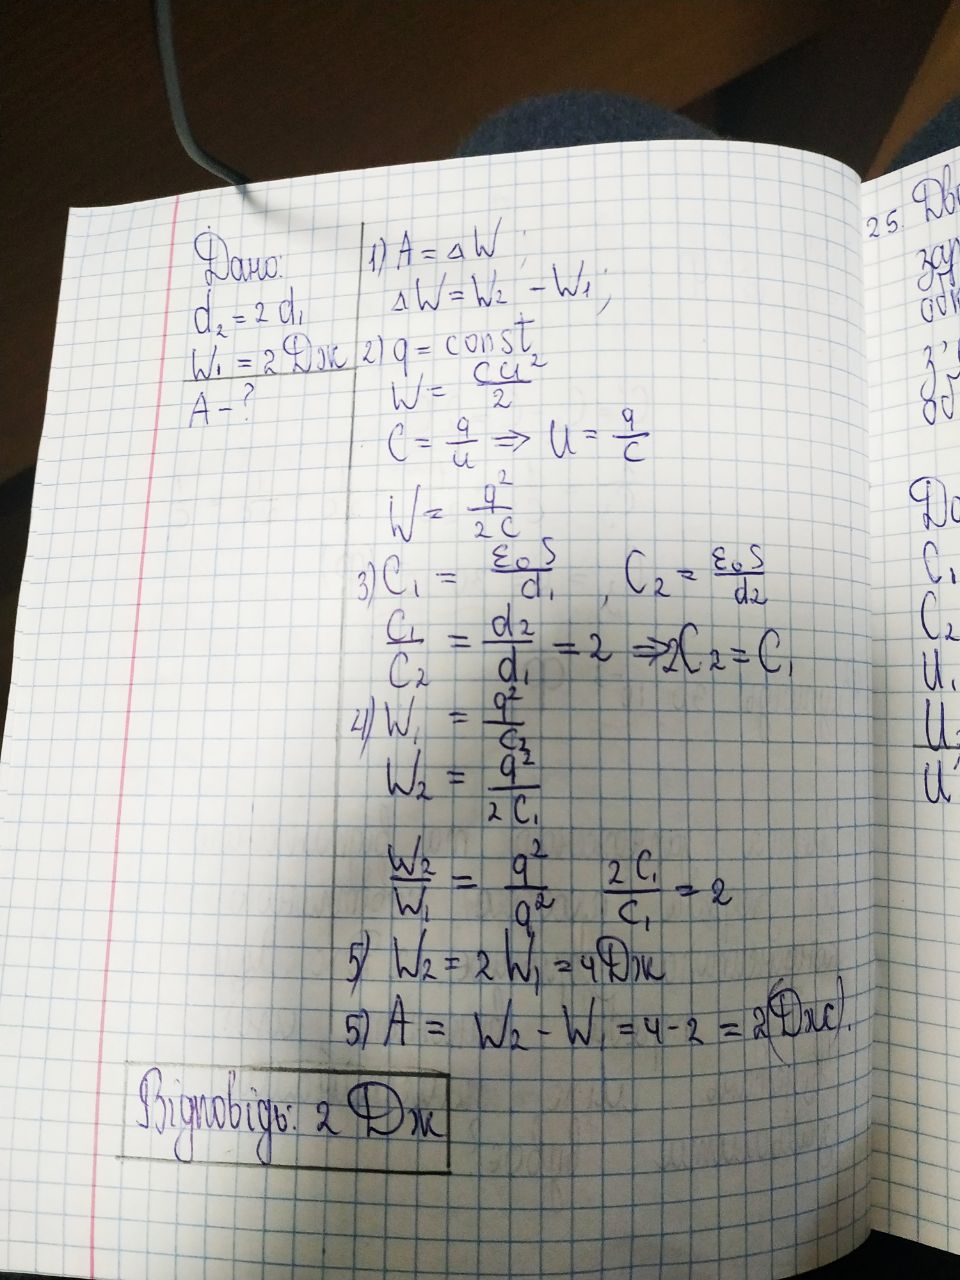 Дано:
d₂ = 2 d₁
W₁ = 2 Дж
A - ?
1) A = ΔW;
ΔW = W₂ - W₁;
2) q = const
W = CU²/2
C = q/U ⇒ U = q/C
W = q²/2C
3) C₁ = ε₀S/d₁, C₂ = ε₀S/d₂
C₁/C₂ = d₂/d₁ = 2 ⇒ 2C₂ = C₁
4) W₁ = q²/C₂
W₂ = q²/2C₁
W₂/W₁ = q²/q² 2C₁/C₁ = 2
5) W₂ = 2W₁ = 4 Дж
5) A = W₂ - W₁ = 4 - 2 = 2 (Дж).
Відповідь: 2 Дж
25. Дв
C₁
C₂
U₁